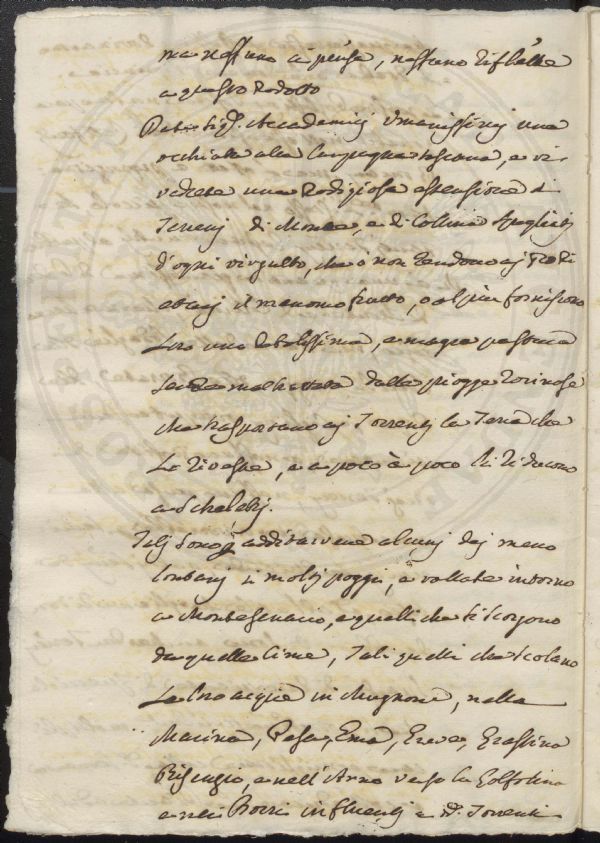 ma nessuno ci pensa, nessuno riflette
a questo
Date Sig.ri Accademici Umanissimi una
occhiata alla Campagna toscana, e vi
vedrete una prodigiosa estensione di
Terreni di Monte, e di Collina spogliati
d'ogni virgulto, che ò non rendono ai
il menomo frutto, o al più forniscono
Loro una debolissima, e magra pastura
dalle piogge rovinose
che trasportano ai Torrenti la Terra che
Le riveste, e a poco à poco li riducono
a Scheletri.
Tali sono addivenuti alcuni dei meno
lontani i molti poggi, e vallate intorno
a Montesenario, e quelli che si scorgono
da quelle Cime, Tali quelli che scolano
Le loro acque in Mugnone, nella
Marina, Pesa, Ema, Greve, Grassina
e nell'Arno verso la Golfolina
e nei Borri influenti a d.i Torrenti